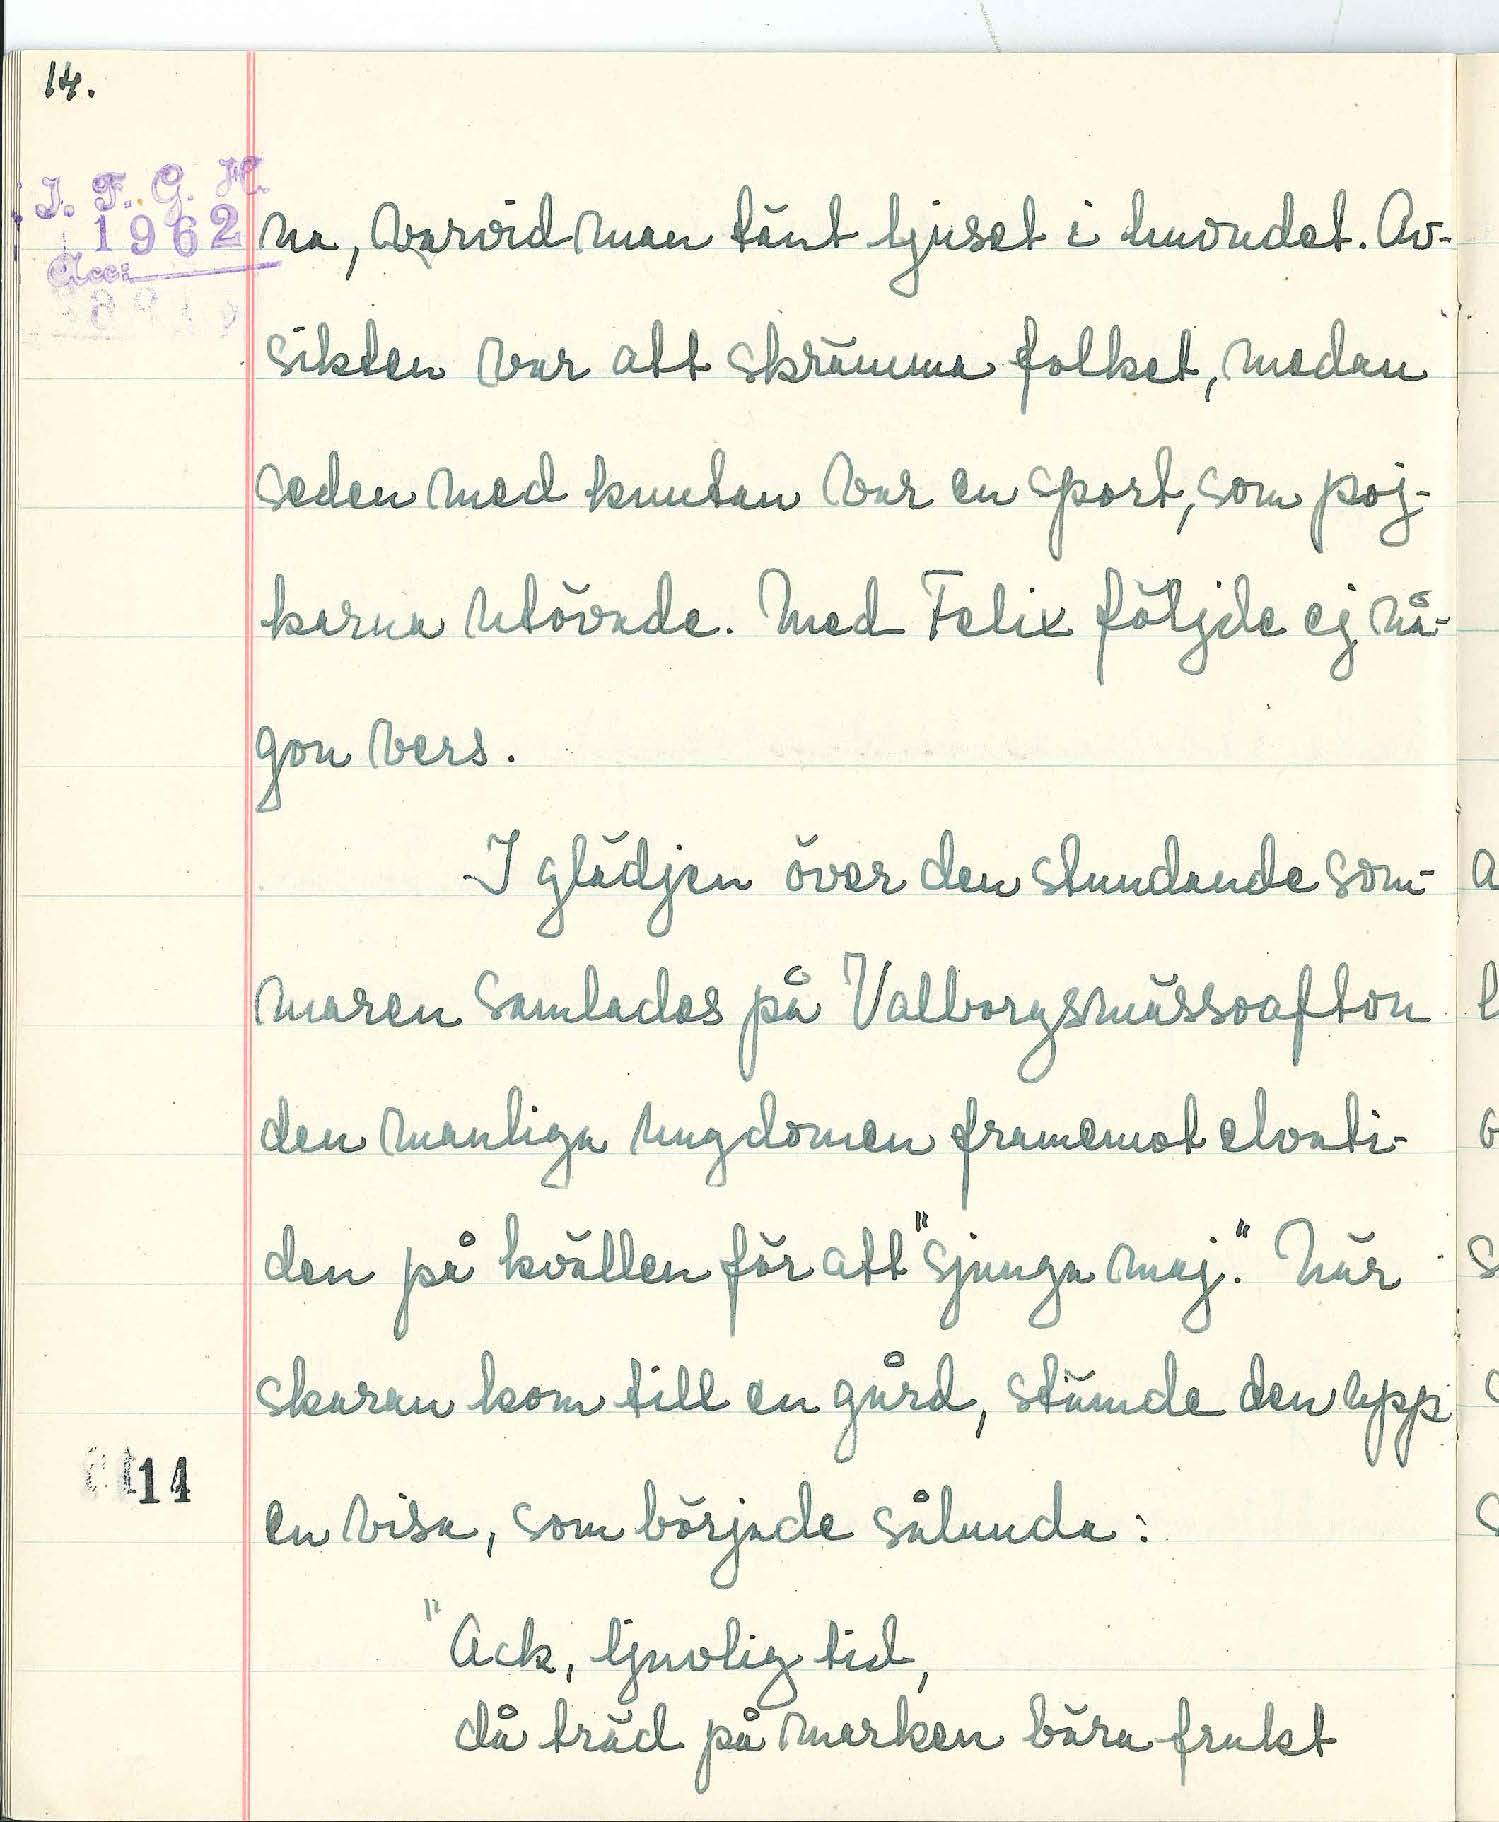 14.
I. F. G. H.
1962
Acc:
na, varvid man tänt ljuset i huvudet. Av-
sikten var att skrämma folket, medan
seden med knutan var en sport, som poj-
karna utövade. Med Felix följde ej nå-
gon vers.
I glädjen över den stundande som-
maren samlades på Valborgsmässoafton
den manliga ungdomen framemot elvati-
den på kvällen för att "sjunga maj". När
skaran kom till en gård, stämde den upp
14
en visa, som började sålunda:
"Ack, ljuvlig tid,
då träd på marken bära frukt